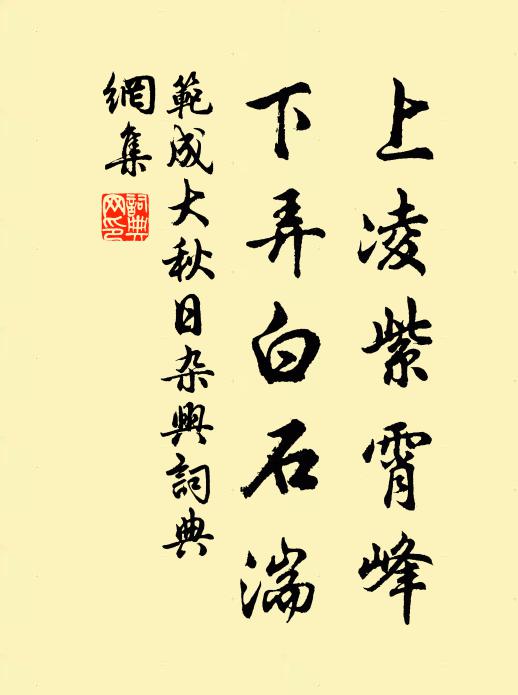 上凌紫霄峰
下弄白石湍
範成大秋日杂興詞典
網集
詞典网印